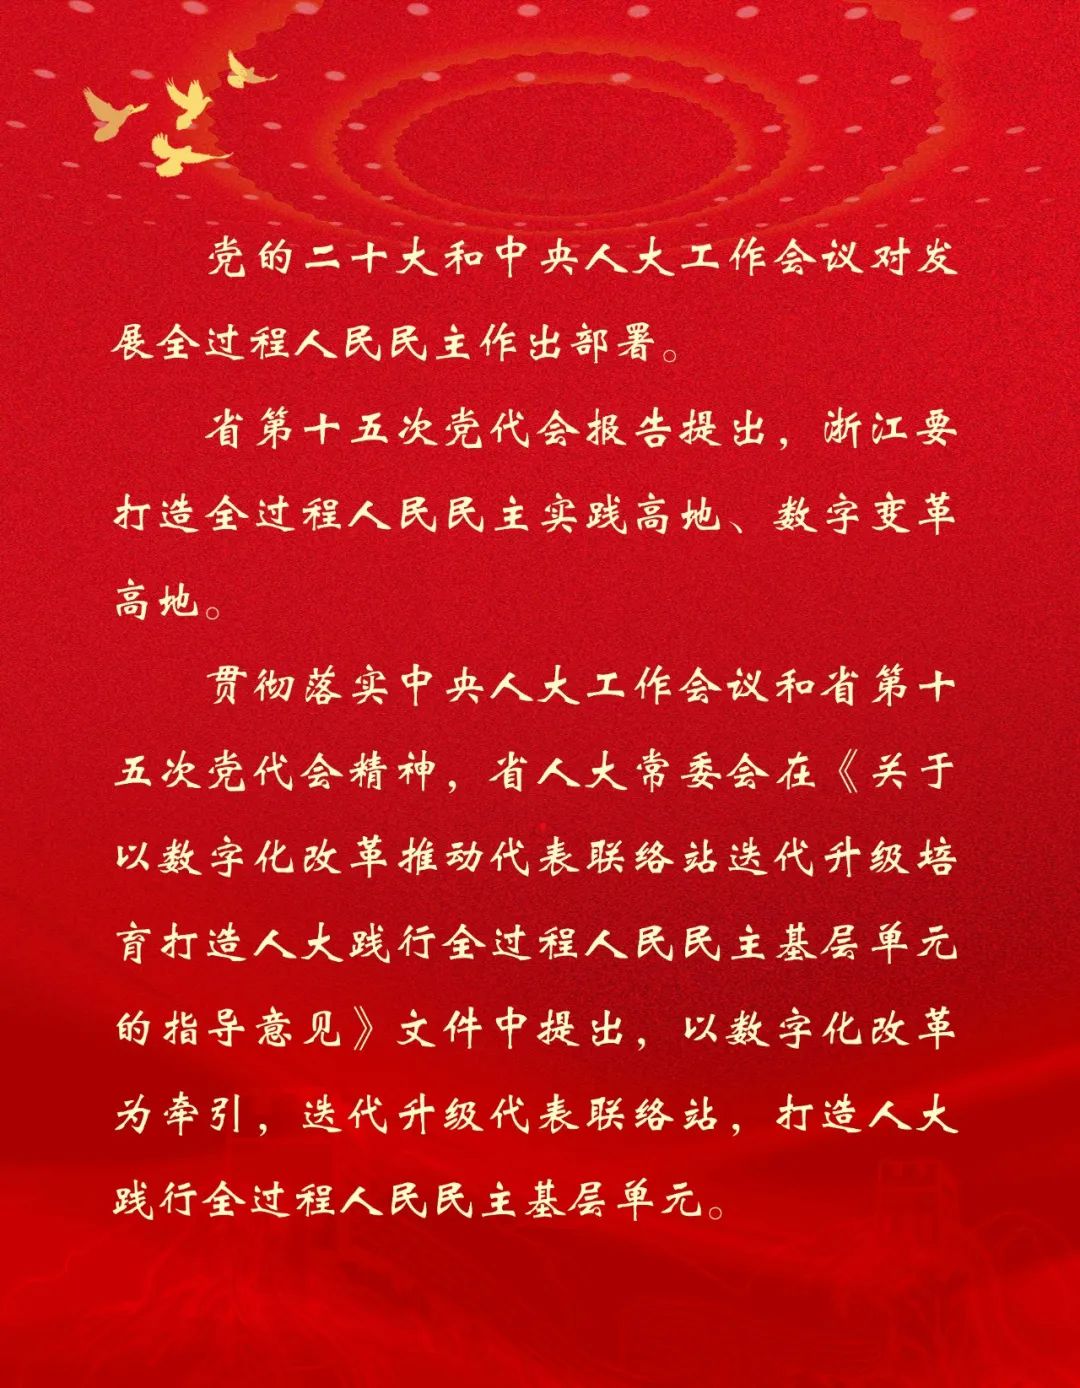 党的二十大和中央人大工作会议对发
展全过程人民民主作出部署。
省第十五次党代会报告提出，浙江要
打造全过程人民民主实践高地、数字变革
高地。
贯彻落实中央人大工作会议和省第十
五次党代会精神，省人大常委会在《关于
以数字化改革推动代表联络站迭代升级培
育打造人大践行全过程人民民主基层单元
的指导意见》文件中提出，以数字化改革
为牵引，迭代升级代表联络站，打造人大
践行全过程人民民主基层单元。